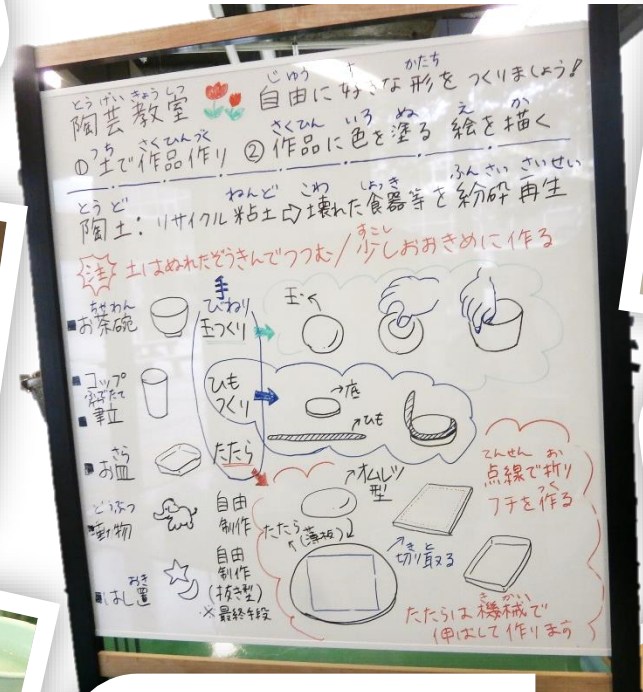 とうげいきょうしつ じゆう す かたち
陶芸教室 自由に好きな形をつくりましょう!
つち さくひんづく さくひん いろ ぬ え か
①土で作品作り ②作品に色を塗る 絵を描く
とうど ねんど こわ しょっき ふんさい さいせい
陶土:リサイクル粘土⇨壊れた食器等を紛砕再生
すこし
注 土はぬれたぞうきんでつつむ/少しおおきめに作る
ちゃわん
■お茶碗
コップ
ふでたて
筆立
さら
お皿
どうぶつ
動物
おき
はし置
手
びねり
玉つくり
ひも
つくり
たたら
自由
制作
自由
制作
(抜き型)
※最終手段
玉
底
ひも
オムレツ
型
たたら(薄板)
き と
切り取る
てんせん お
点線で折り
つく
フチを作る
きかい
たたらは機械で
伸ばして作ります